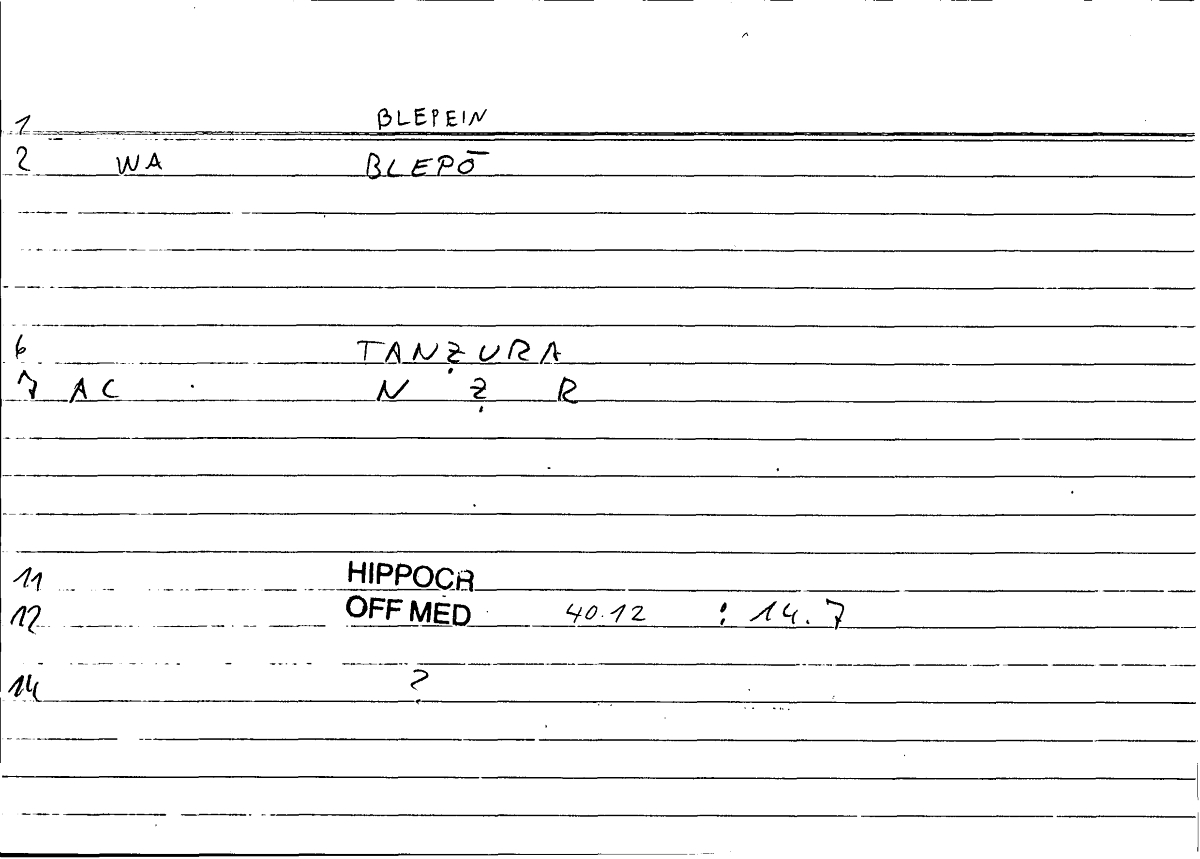 1 BLEPEIN
2 WA BLEPŌ
6 TANẒURA
7 AC N Ẓ R
11 HIPPOCR
12 OFF MED 40.12 : 14.7
14 ?